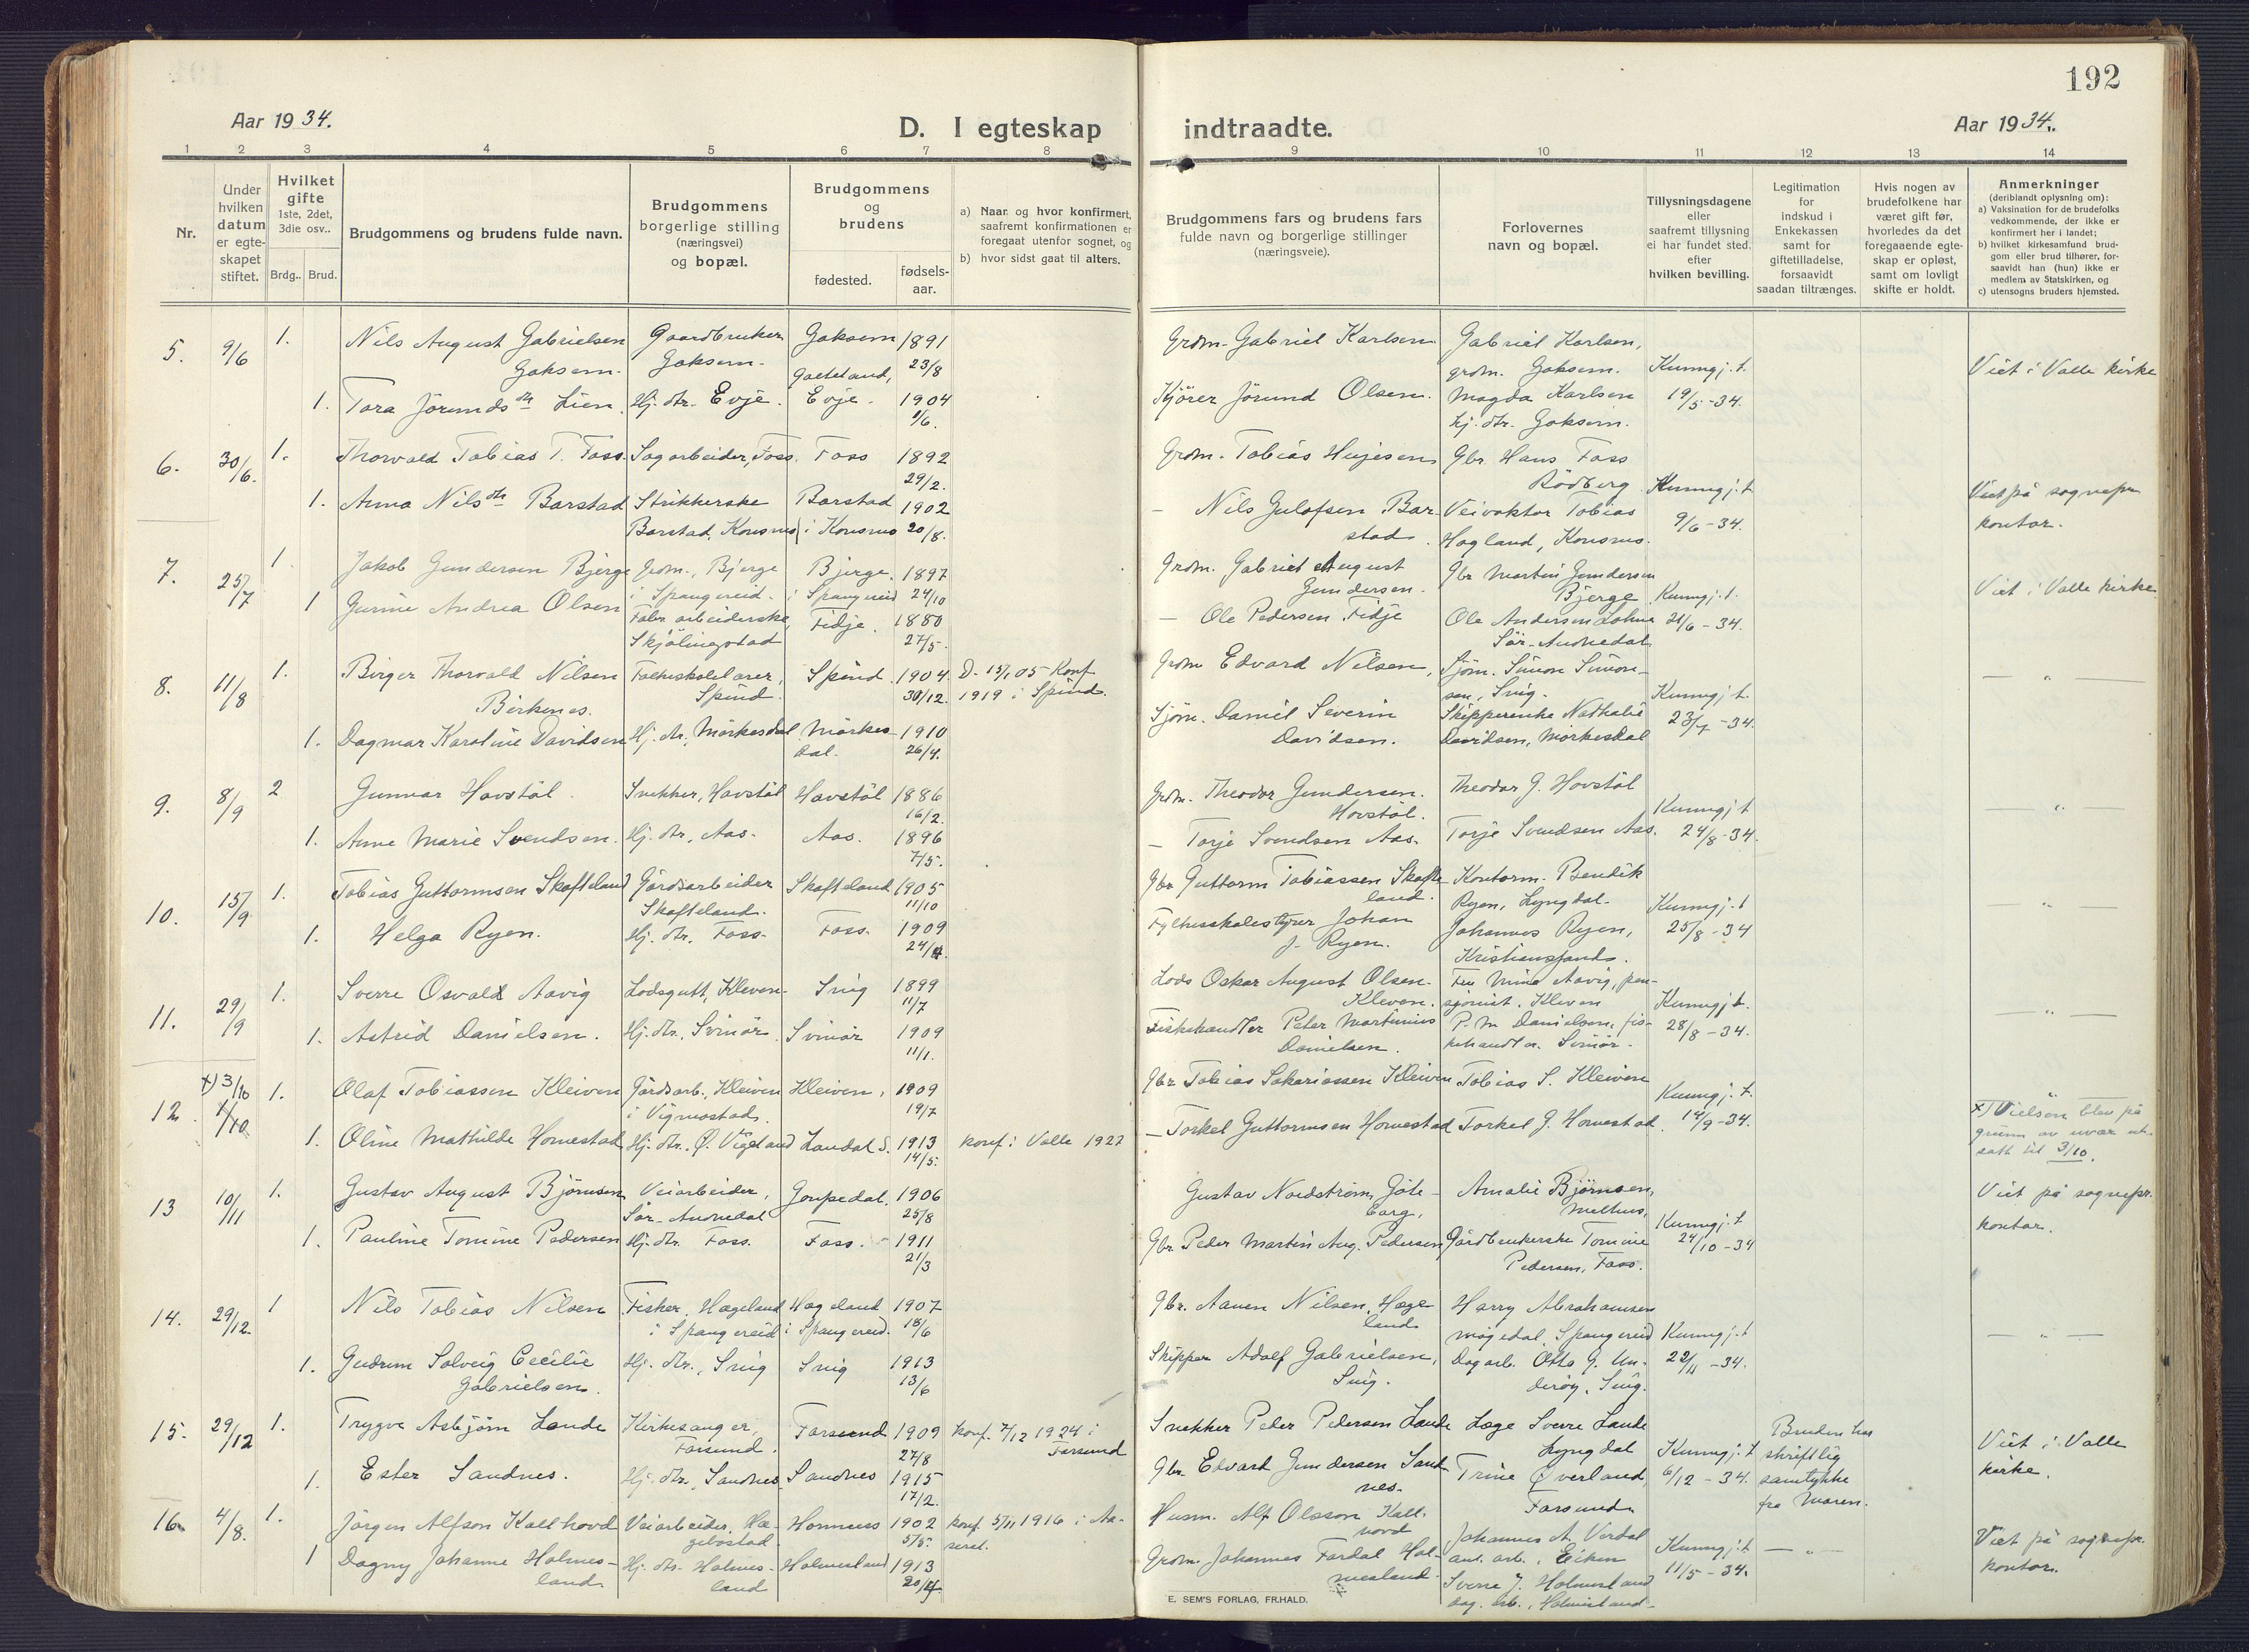 192
Aar 1934.
D. I egteskap indtraadte.
Aar 1934.
1 2 3 4 5 6 7 8 9 10 11 12 13 14
Nr.
Under hvilken datum er egte-skapet stiftet.
Hvilket gifte 1ste, 2det, 3die osv..
Brdg.. Brud.
Brudgommens og brudens fulde navn.
Brudgommens borgerlige stilling (næringsvei) og bopæl.
Brudgommens og brudens
fødested.
fødsels-aar.
a) Naar og hvor konfirmert, saafremt konfirmationen er foregaat utenfor sognet, og
b) hvor sidst gaat til alters.
Brudgommens fars og brudens fars fulde navn og borgerlige stillinger (næringsveie).
Forlovernes navn og bopæl.
Tillysningsdagene eller saafremt tillysning ei har fundet sted, efter hvilken bevilling.
Legitimation for indskud i Enkekassen samt for giftetilladelse, forsaavidt saadan tiltrænges.
Hvis nogen av brudefolkene har været gift før, hvorledes da det foregaaende egte-skap er opløst, samt om lovligt skifte er holdt.
Anmerkninger (deriblandt oplysning om):
a) Vaksination for de brudefolks vedkommende, der ikke er konfirmert her i landet;
b) hvilket kirkesamfund brud-gom eller brud tilhører, for-saavidt han (hun) ikke er medlem av Statskirken, og
c) utensogns bruders hjemsted.
5. 9/6 1. Nils August Gabrielsen Gaardbruker Goksem 1891 Grdm. Gabriel Karlsen Gabriel Karlsen,
Goksem. Goksem. 23/8 grdm. Goksem. Kunngj. t. Viet i Valle kirke
1. Tora Jörundsdtr Lien Hj. dtr. Evje. Evje. 1904 Kjörer Jörund Olsen. Magda Karlsen 19/5-34.
1/6. hj. dtr. Goksem.
6. 30/6. 1. Thorvald Tobias T. Foss. Sagarbeider, Foss. Foss 1892 Grdm. Tobias Gbr. Hans Foss
29/2. Rödberg. Kunngj. t. Viet på sognepr.
1. Anna Nilsdtr Barstad Strikkerske Barstad 1902 – Nils Gulofsen Bar- Veivokter Tobias kontor.
Barstad, Konsmo i Konsmo 20/8. stad. Hogland, Konsmo. 9/6-34.
7. 25/7 1. Jakob Gundersen Bjerge Grdm., Bjerge Bjerge. 1897 Grdm. Gabriel August Gbr. Martin Gundersen
i Spangereid. i Spangereid 24/10 Gundersen. Bjerge. Kunngj. t. Viet i Valle kirke.
1 Gurine Andrea Olsen Fabr. arbeiderske, Fidje. 1880 – Ole Pedersen Fidje Ole Andersen Lohne 21/6-34.
Skjölingstad 27/5. Sör-Audnedal
8. 11/8 1. Birger Thorvald Nilsen Folkeskolelærer, Spind. 1904. D. 15/1 05 Konf. Grdm Edvard Nilsen, Sjöm. Simon Simon-
Birkenes. Spind. 30/12. 1919 i Spind. sen, Snig. Kunngj. t. — " —
1. Dagmar Karoline Davidsen Hj. dtr., Mörkesdal Mörkes- 1910 Sjöm. Daniel Severin Skipperenke Nathalie 23/7-34.
dal. 26/4. Davidsen. Davidsen, Mörkesdal
9. 8/9 2 Gunnar Hovstöl. Snekker, Havstöl Havstöl 1886 Grdm. Theodor Gundersen. Theodor G. Hovstöl
16/2. Hovstöl. Kunngj. t — " —
1. Anne Marie Svendsen. Hj. dtr., Aas. Aas. 1896 – Torje Svendsen Aas. Torje Svendsen Aas. 24/8-34.
7/5.
10. 15/9 1. Tobias Guttormsen Skofteland Gårdsarbeider Skofteland 1905 Gbr Guttorm Tobiassen Skofte- Kontorm. Bendik
Skofteland. 11/10 land. Ryen, Lyngdal. Kunngj. t — " —
1. Helga Ryen. Hj. dtr, Foss. Foss. 1909 Fylkesskolestyrer Johan Johannes Ryen, 25/8-34
24/4. J. Ryen. Kristiansand.
11. 29/9 1. Sverre Osvald Aavig Lodsgutt, Kleven. Snig 1899 Lods Oskar August Olsen. Fru Mina Aavig, pen-
11/7 Kleven. sjonist. Kleven Kunngj. t. — " —
1. Astrid Danielsen. Hj. dtr., Svinör. Svinör 1909 Fiskehandler Peter Martinius P. M. Danielsen, fis- 28/8-34.
11/1. Danielsen. kehandler. Svinör.
12. x) 3/10 1/10 1. Olaf Tobiassen Kleiven Gårdsarb., Kleiven Kleiven, 1909 Gbr. Tobias Sakariassen Kleiven Tobias S. Kleiven
i Vigmostad. 19/7 Kunngj. t. x) Vielsen blev på
1. Oline Mathilde Homestad Hj. dtr. Ö. Vigeland Landal S. 1913 konf. i Valle 1927 – Torkel Guttormsen Homestad Torkel G. Homestad. 14/9-34. grunn av uvær ut-
14/5. satt til 3/10.
13 10/11 1. Gustav August Björnsen Veiarbeider, 1906 Gustav Nordström, Göte- Amalie Björnsen, Viet på sognepr.
Sör-Audnedal 25/8 borg. Melhus, Kunngj. t kontor.
1. Pauline Tomine Pedersen Hj. dtr. Foss. Foss. 1911 Gbr. Peder Martin Aug. Pedersen Gårdbrukerske Tomine 24/10-34
21/3 Pedersen, Foss.
14. 29/12. 1 Nils Tobias Nilsen Fisker, Hægeland Hægeland 1907 Gbr. Aanen Nilsen, Hæge- Harry Abrahamsen
i Spangereid i Spangereid. 18/6 land. Spangereid Kunngj. t — " —
1. Gudrun Solveig Cecilie Hj. dtr., Snig Snig 1913 Skipper Adolf Gabrielsen, Dagarb. Otto G. Un- 22/11-34.
Gabrielsen. 13/6 Snig. deröy, Snig.
15. 29/12 1. Trygve Asbjörn Lande Kirkesanger, Farsund 1909 konf. 7/12 1924 i Snekker Peder Pedersen Lande Læge Sverre Lande Bruden har
Farsund. 27/8 Farsund Lyngdal Kunngj. t. skriftlig Viet i Valle
1. Ester Sandnes. Hj. dtr., Sandnes. Sandnes 1915 Gbr. Edvard Gundersen Sand- Trine Överland, 6/12-34. samtykke kirke.
17/2. nes. Farsund fra Moren.
16. 4/8. 1. Jörgen Alfson Kallhovd Veiarbeider, Hæ- 1902 konf. 5/11 1916 i Aa- Husm. Alf Olsson Kall-
gebostad. 5/5. seral. hovd Johannes A. Verdal Viet på sognepr.
1 Dagny Johanne Holmes- Hj. dtr. Holmes- Holmesland 1913 Grdm. Johannes Tardal Hol- Eiken Kunngj. t — " — kontor.
land. land 20/4. mesland. Sverre J. Holmesland 11/5-34.
dag. arb., Holmesland
E. SEM'S FORLAG, FR.HALD.